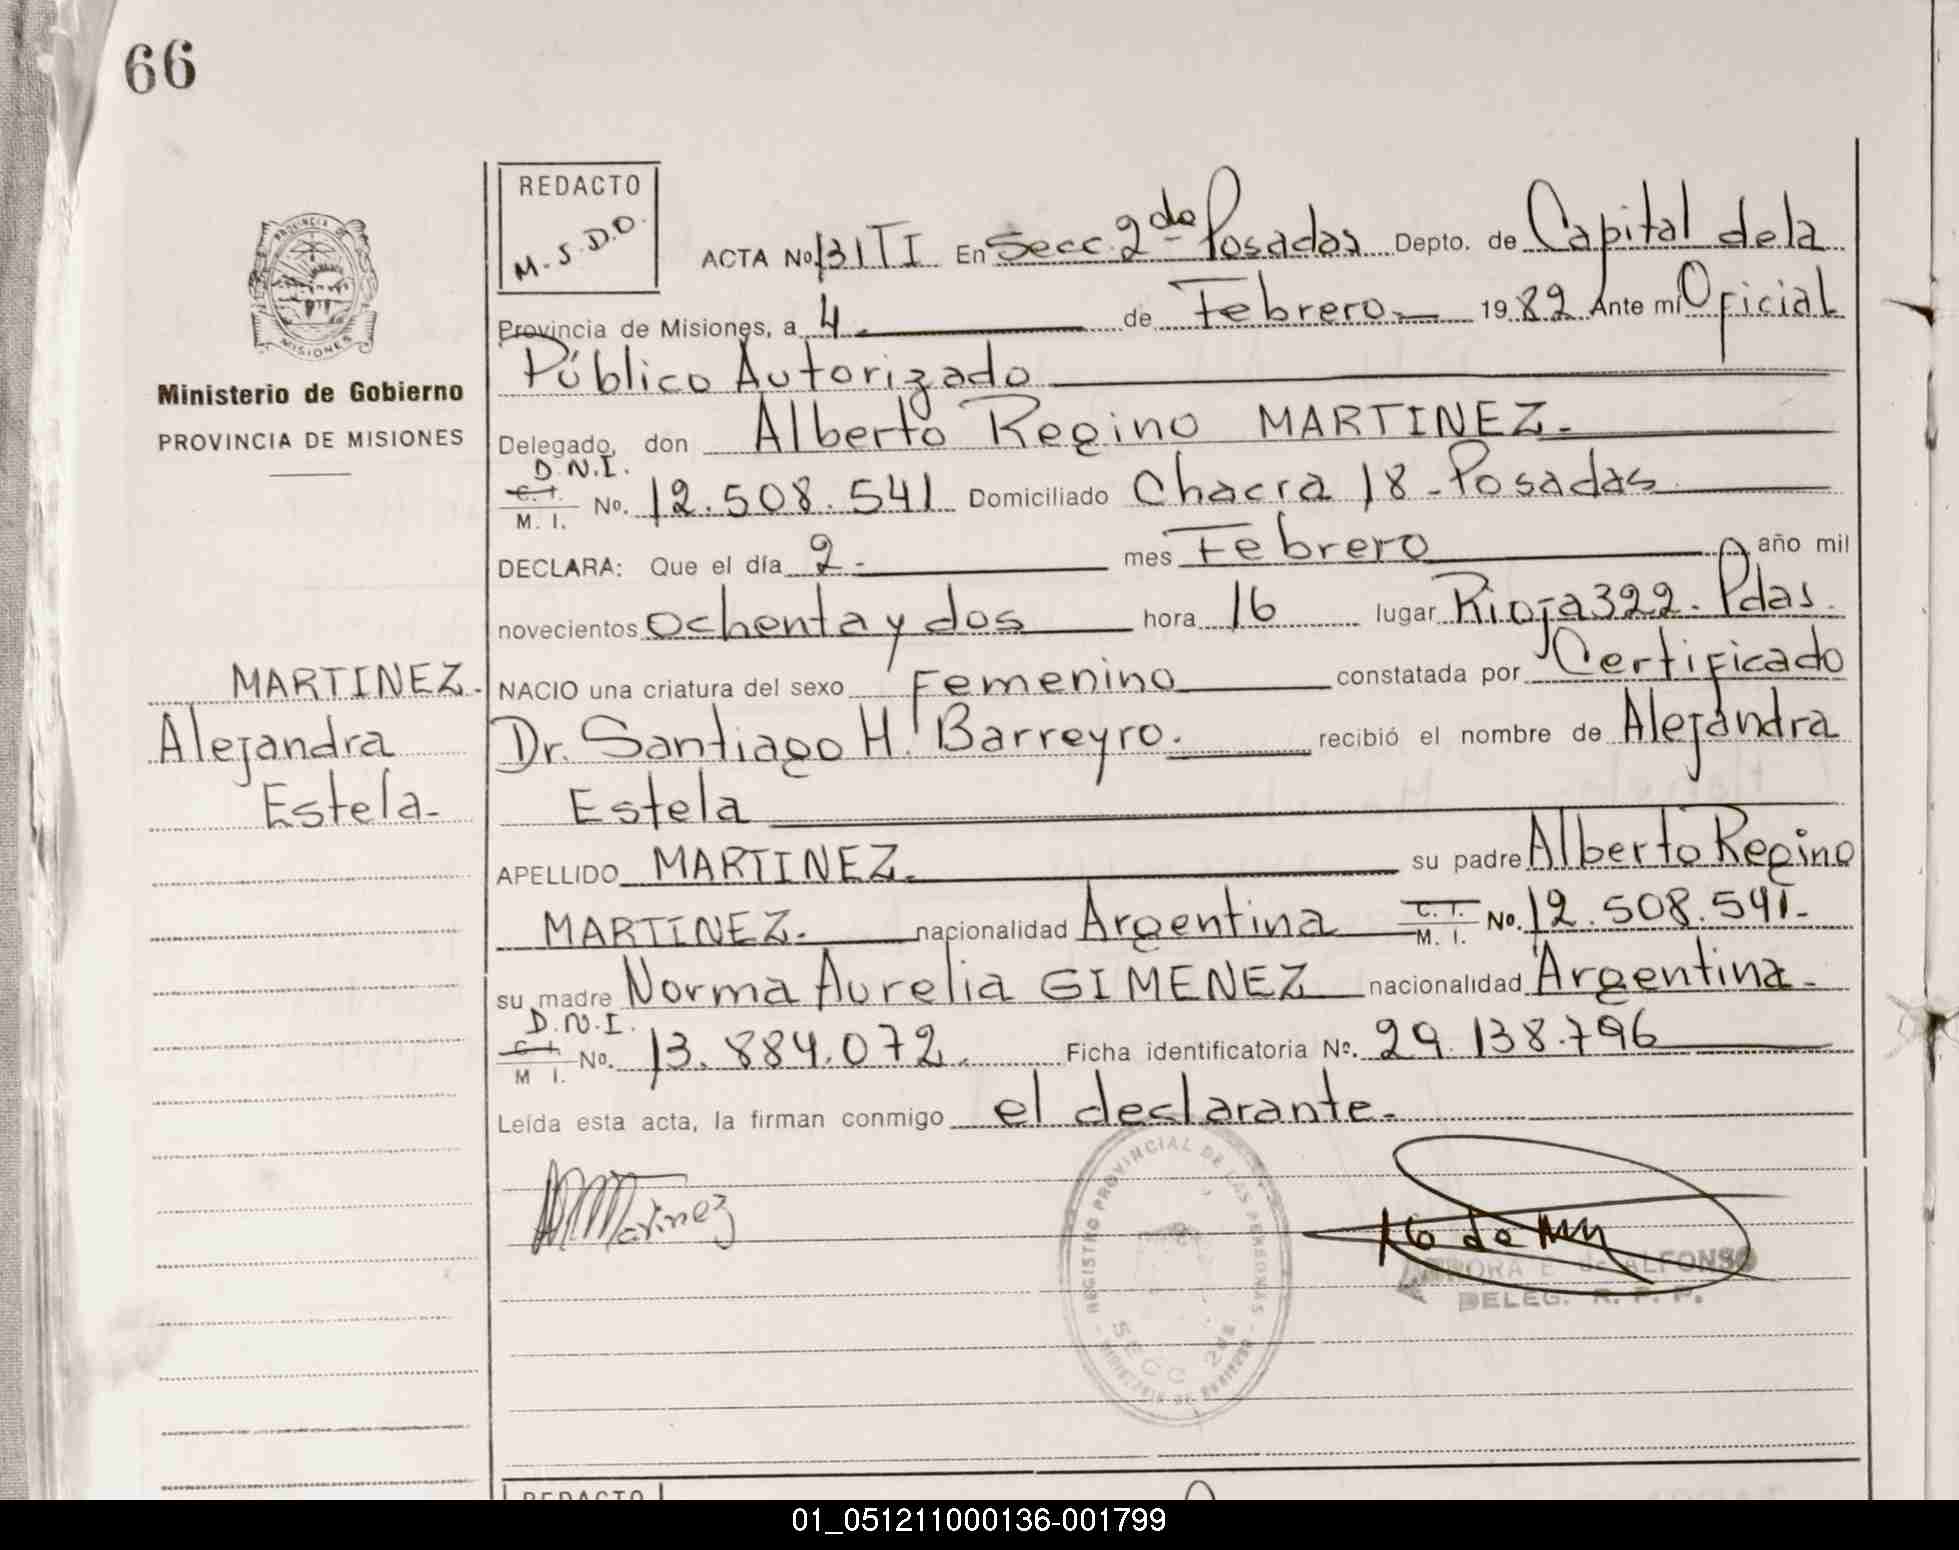 66
REDACTO
M.S.D.O.
ACTA No 131 TI En Secc. 2da Posadas Depto. de Capital de la
Provincia de Misiones, a 4 de Febrero 1982 Ante mi Oficial
Público Autorizado
Delegado, don Alberto Regino MARTINEZ.
D.N.I.
C. I.
M. I. No. 12.508.541 Domiciliado Chacra 18 - Posadas
DECLARA: Que el día 2 - mes Febrero año mil
novecientos ochenta y dos hora 16 lugar Rioja 322. Pdas.
NACIO una criatura del sexo Femenino constatada por Certificado
Dr. Santiago H. Barreyro. recibió el nombre de Alejandra
Estela
APELLIDO MARTINEZ. su padre Alberto Regino
MARTINEZ. nacionalidad Argentina C. I.
M. I. No. 12.508.541-
su madre Norma Aurelia GIMENEZ nacionalidad Argentina.
D.N.I.
C. I.
M I. No. 13.884.072. Ficha identificatoria Nº. 29.138.796
Leída esta acta, la firman conmigo el declarante.
PROVINCIA DE
MISIONES
Ministerio de Gobierno
PROVINCIA DE MISIONES
MARTINEZ.
Alejandra
Estela-
Martinez
REGISTRO PROVINCIAL DE LAS PERSONAS
SECC 2da
E. de ALFONSO
DELEG. R. P. P.
REDACTO
01_051211000136-001799